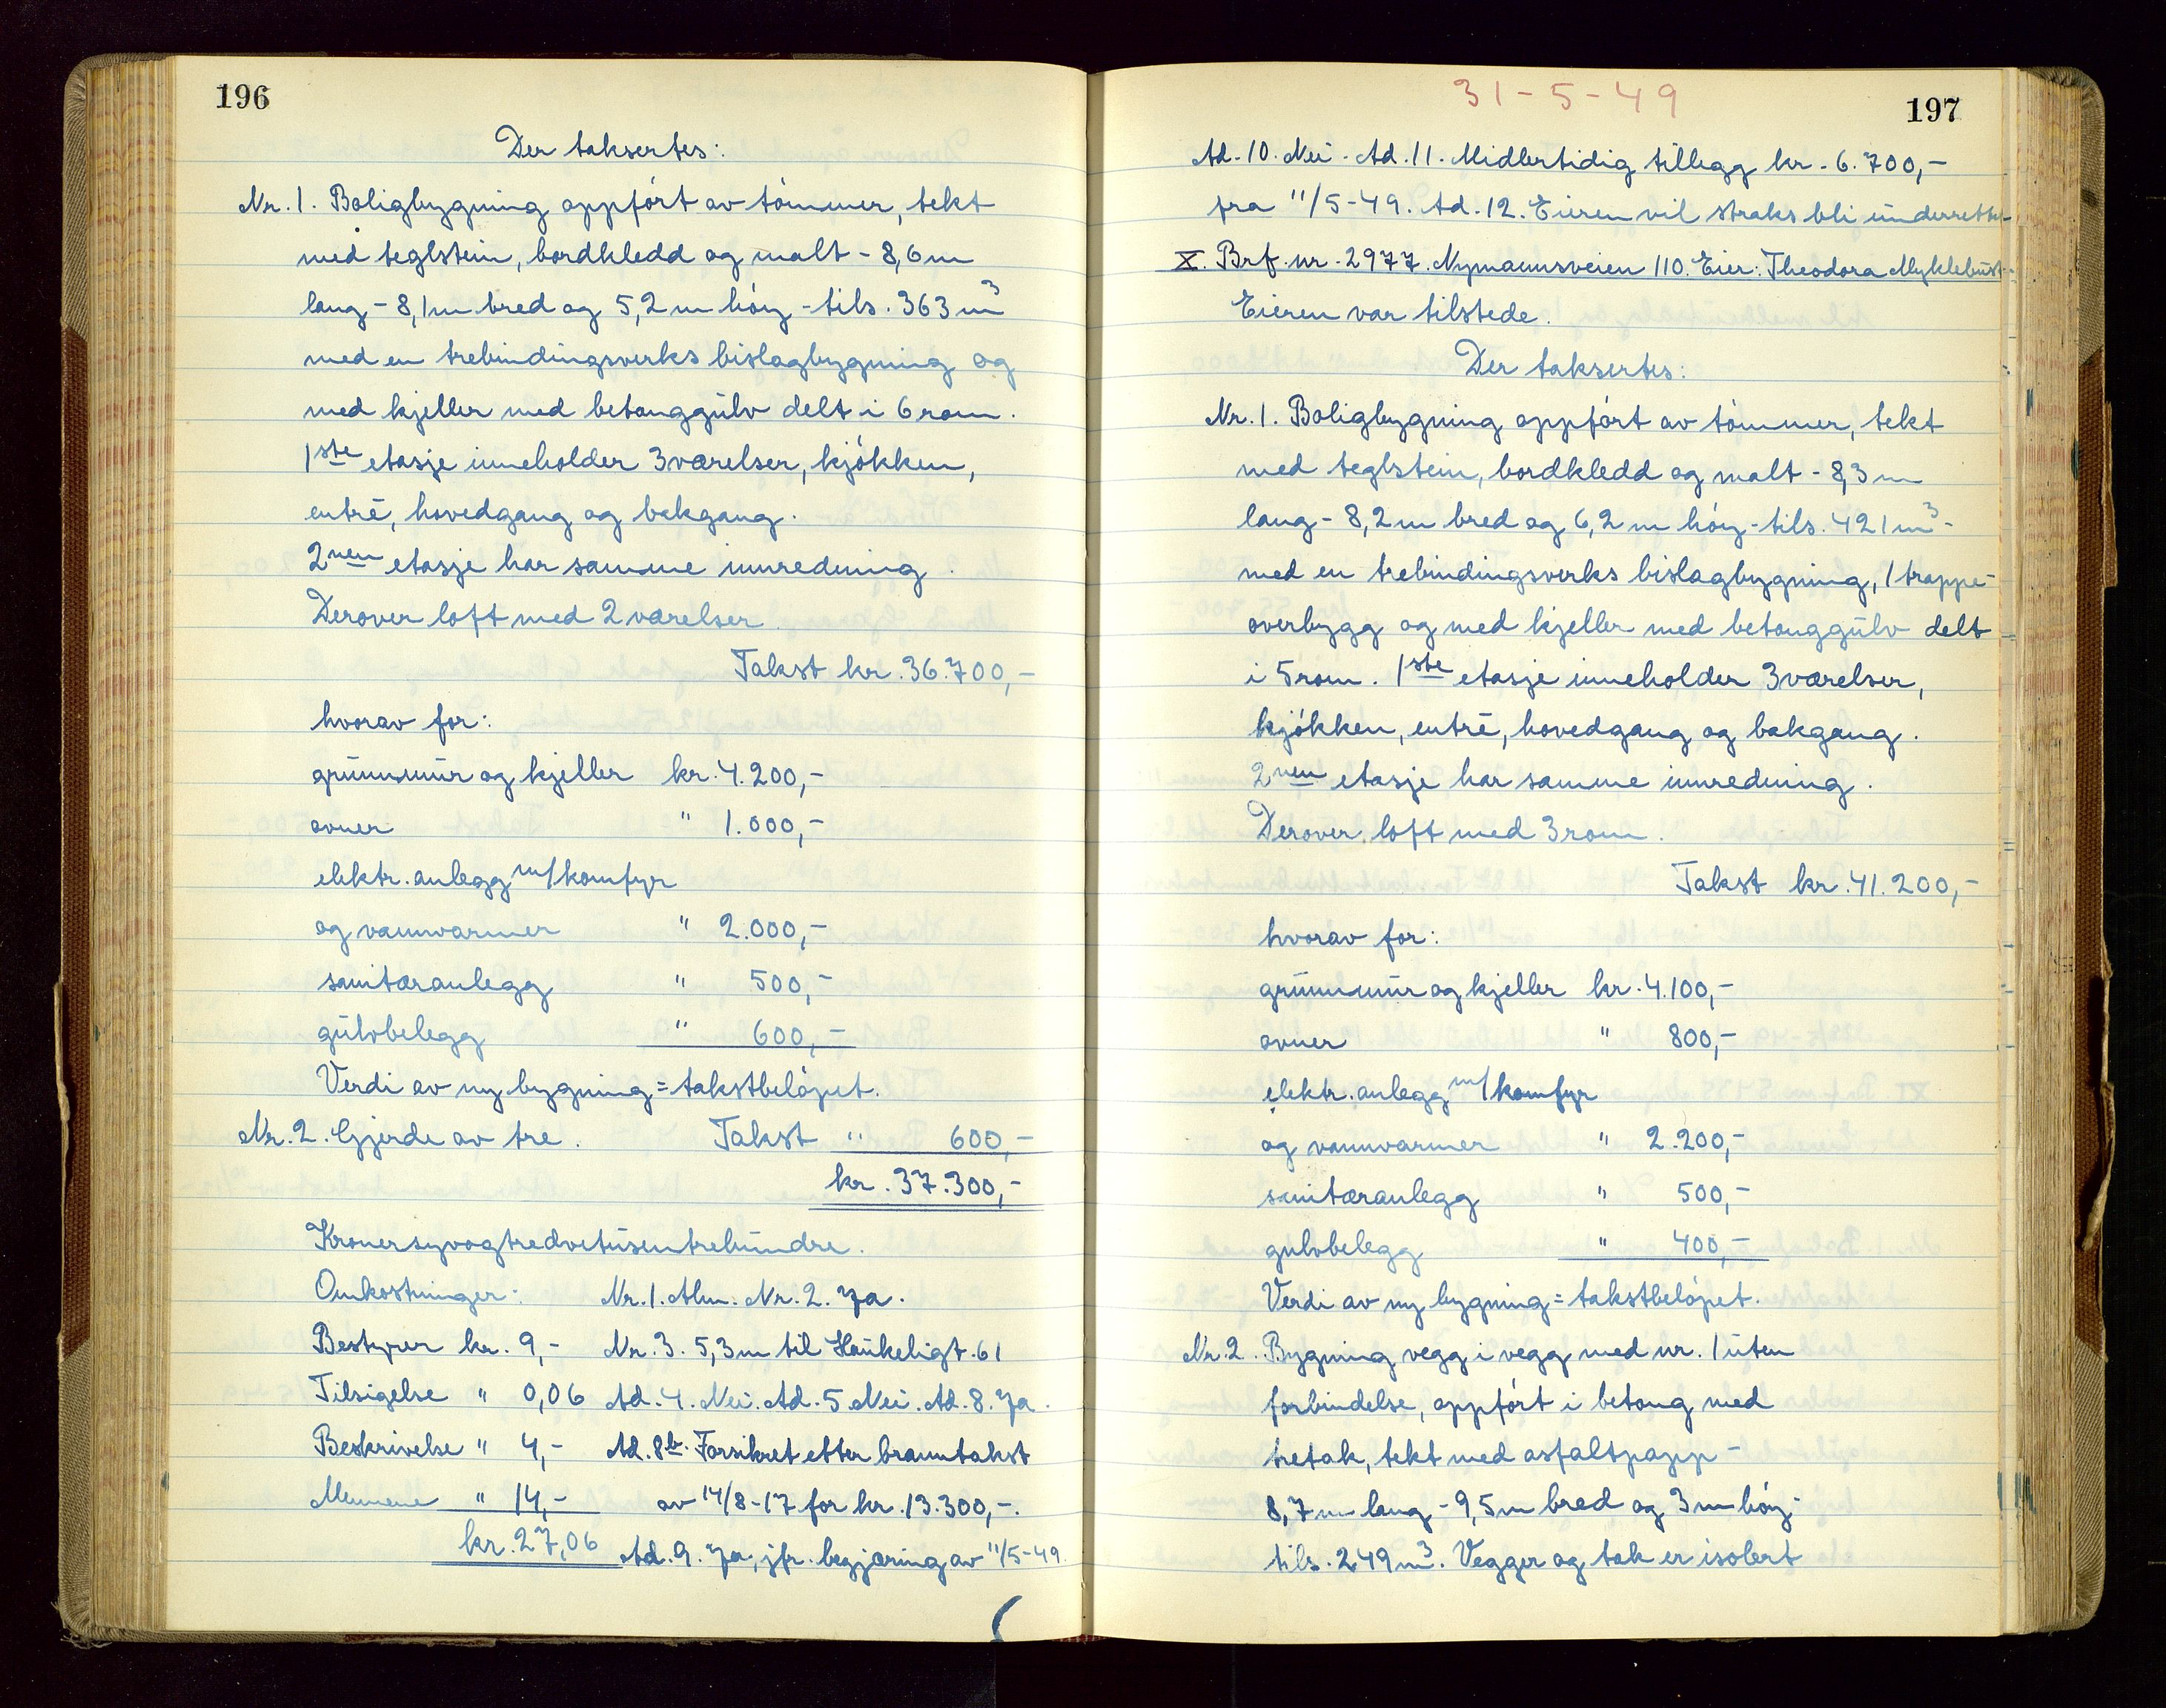 196
Der taksertes:
Nr. 1. Boligbygning oppført av tømmer, tekt
med teglstein, bordkledd og malt - 8,6 m
lang - 8,1 m bred og 5,2 m høy - tils. 363 m³
med en trebindingsverks bislagbygning og
med kjeller med betonggulv delt i 6 rom.
1ste etasje inneholder 3 værelser, kjøkken,
entré, hovedgang og bakgang.
2nen etasje har samme innredning.
Derover loft med 2 værelser.
Takst kr. 36.700,-
hvorav for:
grunnmur og kjeller kr. 4.200,-
ovner " 1.000,-
elektr. anlegg m/komfyr
og vannvarmer " 2.000,-
sanitæranlegg " 500,-
gulvbelegg " 600,-
Verdi av ny bygning = takstbeløpet.
Nr. 2. Gjerde av tre. Takst " 600,-
kr. 37.300,-
Kronersyvogtredvetusentrehundre.
Omkostninger: Nr. 1. Alm. Nr. 2. Ja.
Bestyrer kr. 9,- Nr. 3. 5,3 m til Haukeligt. 61
Tilsigelse " 0,06 Ad. 4. Nei. Ad. 5 Nei. Ad. 8. Ja.
Beskrivelse " 4,- Ad. 8b. Forsikret etter branntakst
Mennene " 14,- av 14/8-17 for kr. 13.300,-.
kr. 27,06 Ad. 9. Ja, jfr. begjæring av 11/5-49.
31-5-49
197
Ad. 10. Nei. Ad. 11. Midlertidig tillegg kr. 6.700,-
fra 11/5-49. Ad. 12. Eieren vil straks bli underrettet.
X. Brf. nr. 2977. Nymannsveien 110. Eier: Theodora Myklebust.
Eieren var tilstede.
Der taksertes:
Nr. 1. Boligbygning oppført av tømmer, tekt
med teglstein, bordkledd og malt - 8,3 m
lang - 8,2 m bred og 6,2 m høy - tils. 421 m³ -
med en trebindingsverks bislagbygning, 1 trappe-
overbygg og med kjeller med betonggulv delt
i 5 rom. 1ste etasje inneholder 3 værelser,
kjøkken, entré, hovedgang og bakgang.
2nen etasje har samme innredning.
Derover loft med 3 rom.
Takst kr. 41.200,-
hvorav for:
grunnmur og kjeller kr. 4.100,-
ovner " 800,-
elektr. anlegg m/komfyr
og vannvarmer " 2.200,-
sanitæranlegg " 500,-
gulvbelegg " 400,-
Verdi av ny bygning = takstbeløpet.
Nr. 2. Bygning vegg i vegg med nr. 1 uten
forbindelse, oppført i betong med
tretak, tekt med asfaltpapp -
8,7 m lang - 9,5 m bred og 3 m høy -
tils. 249 m³. Vegger og tak er isolert